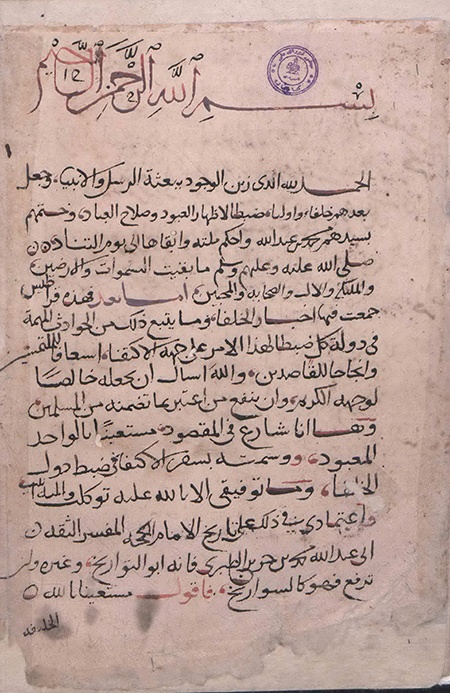 بسم الله الرحمن الرحيم
12
الحمد لله الذى زين الوجود ببعثة الرسل والانبياء وجعل
بعدهم خلفاء واولياء ضبطا لاظهار العبود وصلاح العباد وختمهم
بسيدهم محمد بن عبدالله واحكم ملته وابقاها الى يوم التناد
صلى الله عليه وعليهم وسلم ما بقيت السموات والارضين
والملائكة والال والصحابة والمحبين اما بعد فهذه قراطيس
جمعت فيها اخبار الخلفاء وما يتبع ذلك من الحوادث المهمة
فى دولة كل ضبطا لهذا الامر على جهة الاكتفاء اسعافا للملتمسين
وانجاحا للقاصدين والله اسال ان يجعله خالصا
لوجهه الكريم وان ينفع من اعتبر بما تضمنه من المسلمين
وها انا شارع فى المقصود مستعينا بالواحد
المعبود ووسمته بسفر الاكتفا فى ضبط دول
الخلفا وما توفيقى الا بالله عليه توكلت واليه انيب
واعتمادى فى ذلك على تاريخ الامام الحجة المفسر الثقة
ابى عبدالله محمد بن جرير الطبرى فانه ابو التواريخ وغيره وان
ترفع فهو كالسواريخ فاقول مستعينا بالله
الخليفه